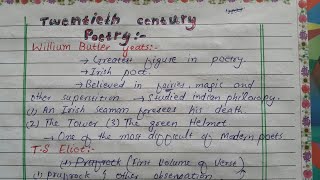 Twentieth century
Poetry:-
William Butler Yeats:-
→ Greatest figure in poetry
→ Irish poet.
→ Believed in fairies, magic and
other superstition → Studied indian philosophy.
(1) An Irish seaman foresees his death.
(2) The Tower (3) The green Helmet
→ One of the most difficult of Modern poets.
T.S Eliot:-
(1) Prufrock (First Volume of Verse)
(1) prufrock & other observation